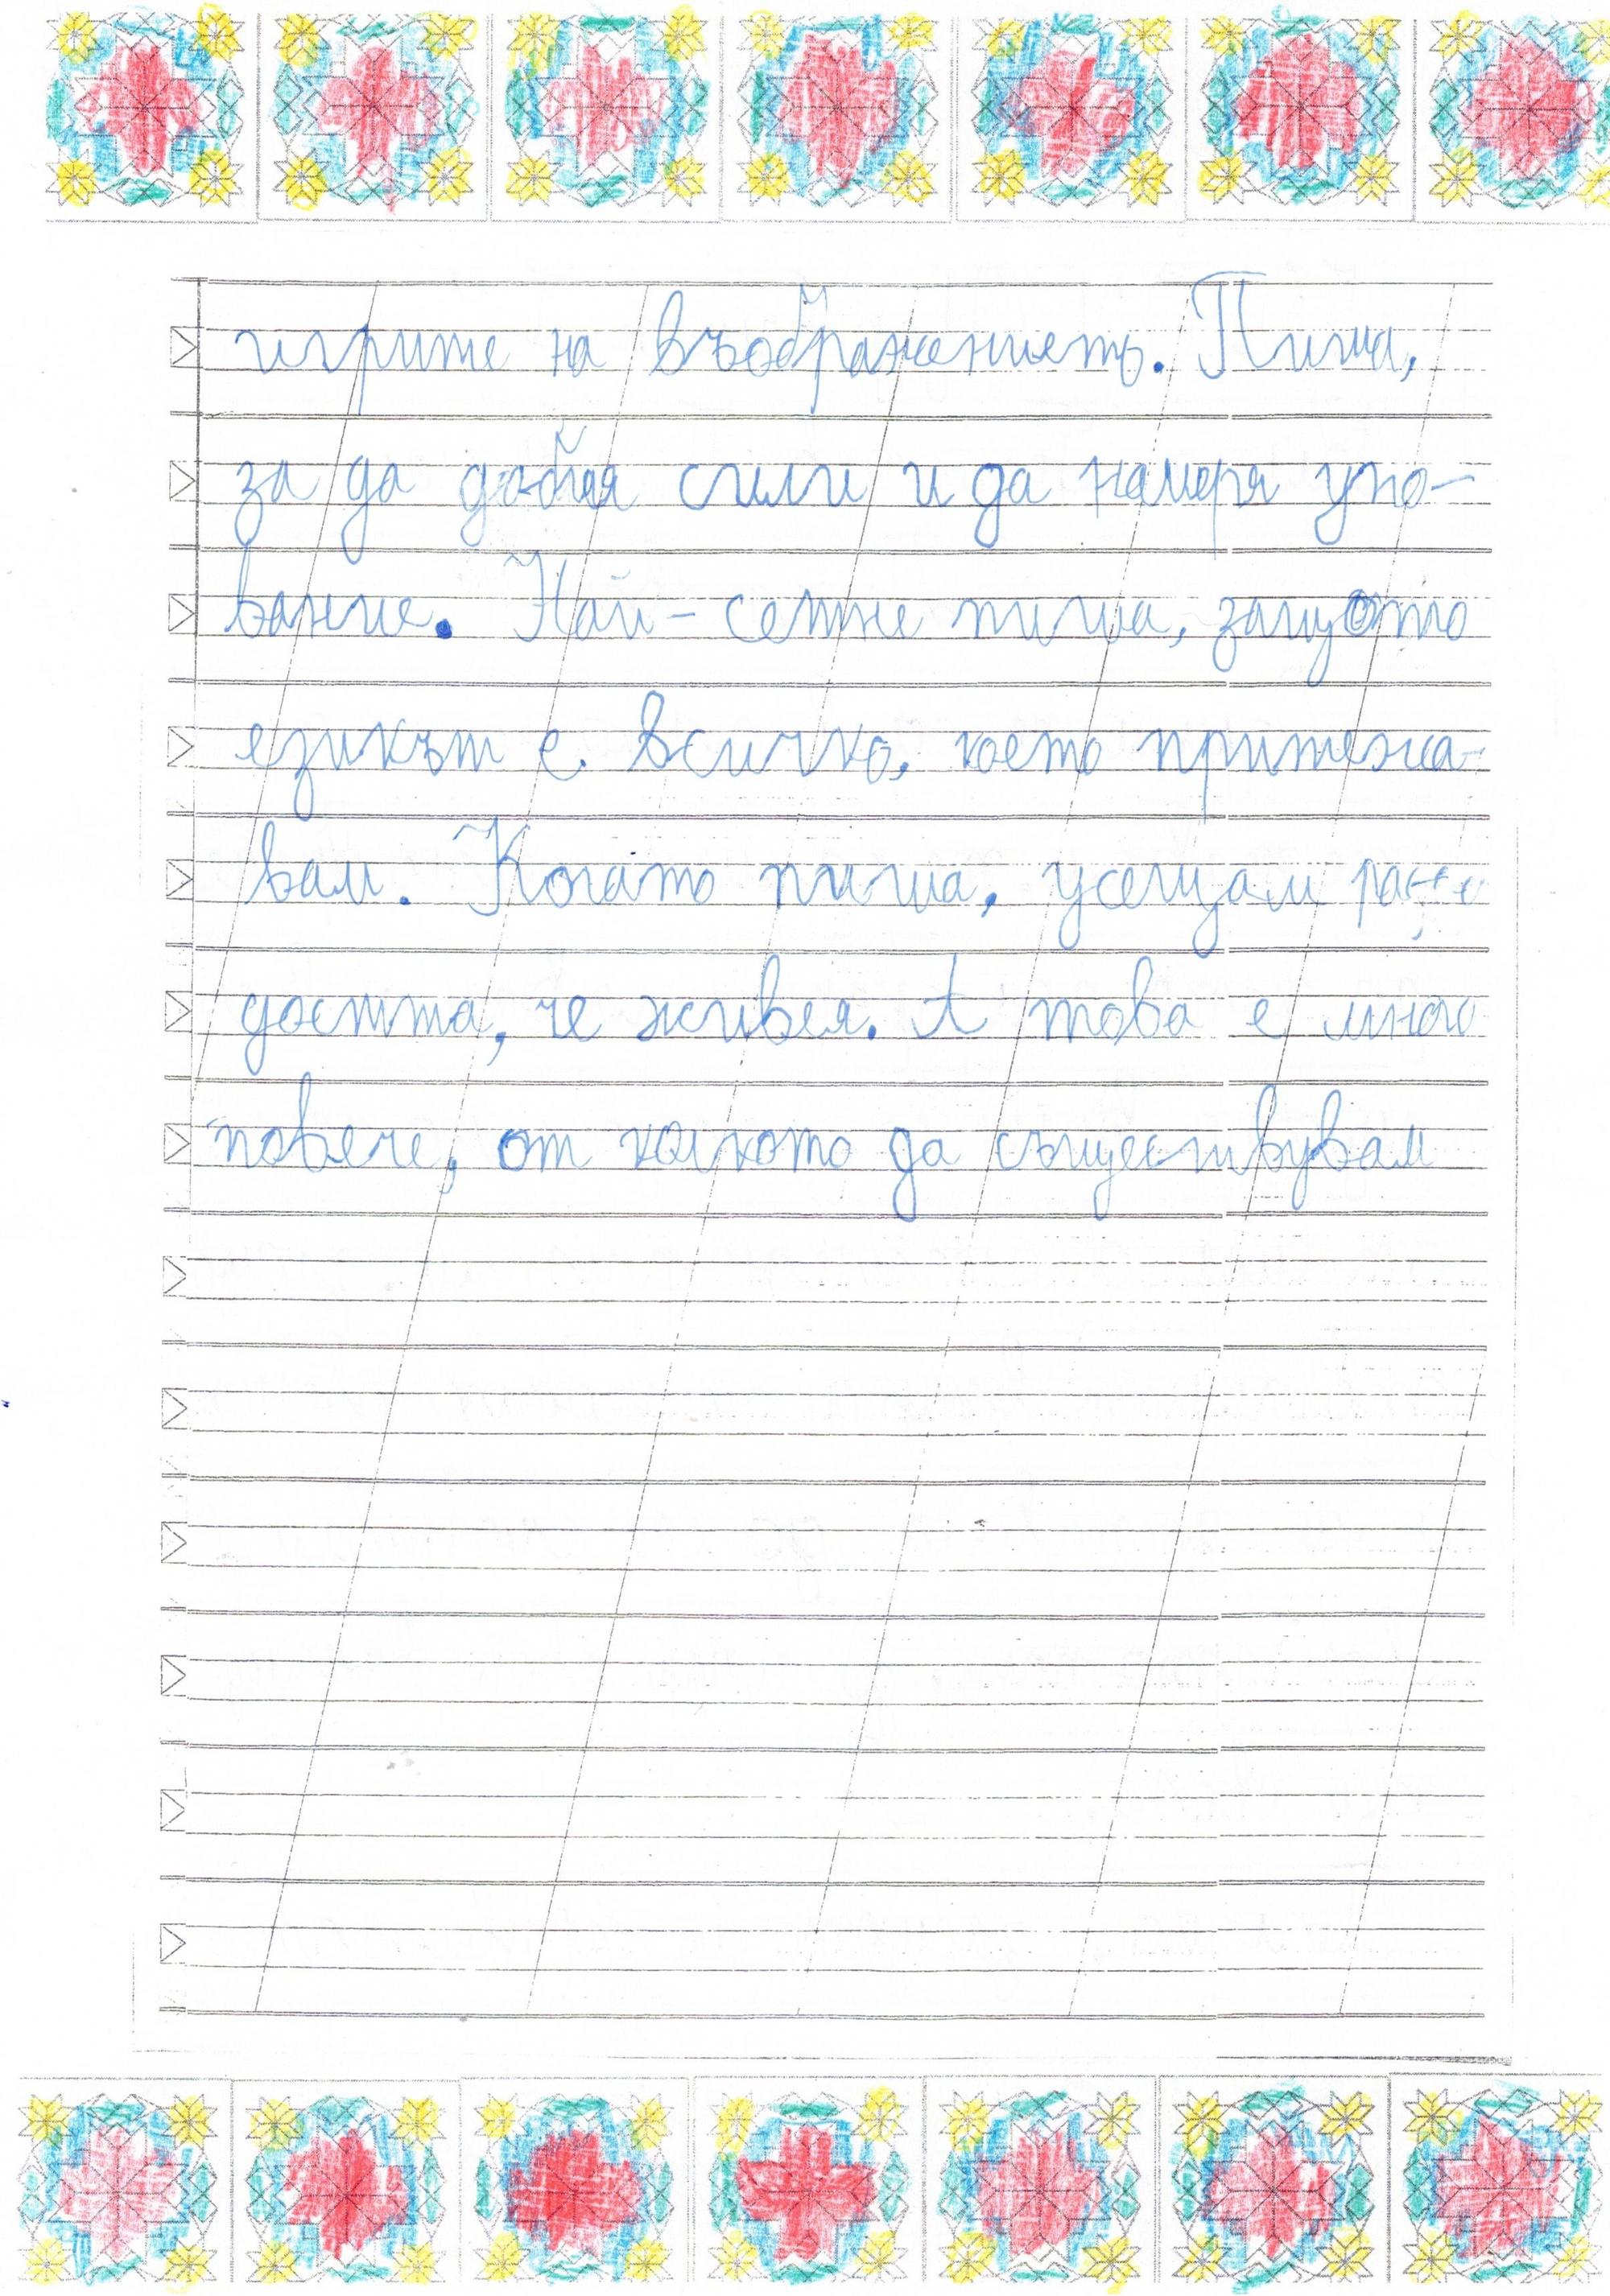 игрите на въображениетъ. Пиша,
за да добия сили и да намеря упо-
вание. Най-сетне пиша, защото
езикът е всичко, което притежа-
вам. Когато пиша, усещам ра-
достта, че живея. А това е много
повече, от колкото да съществувам